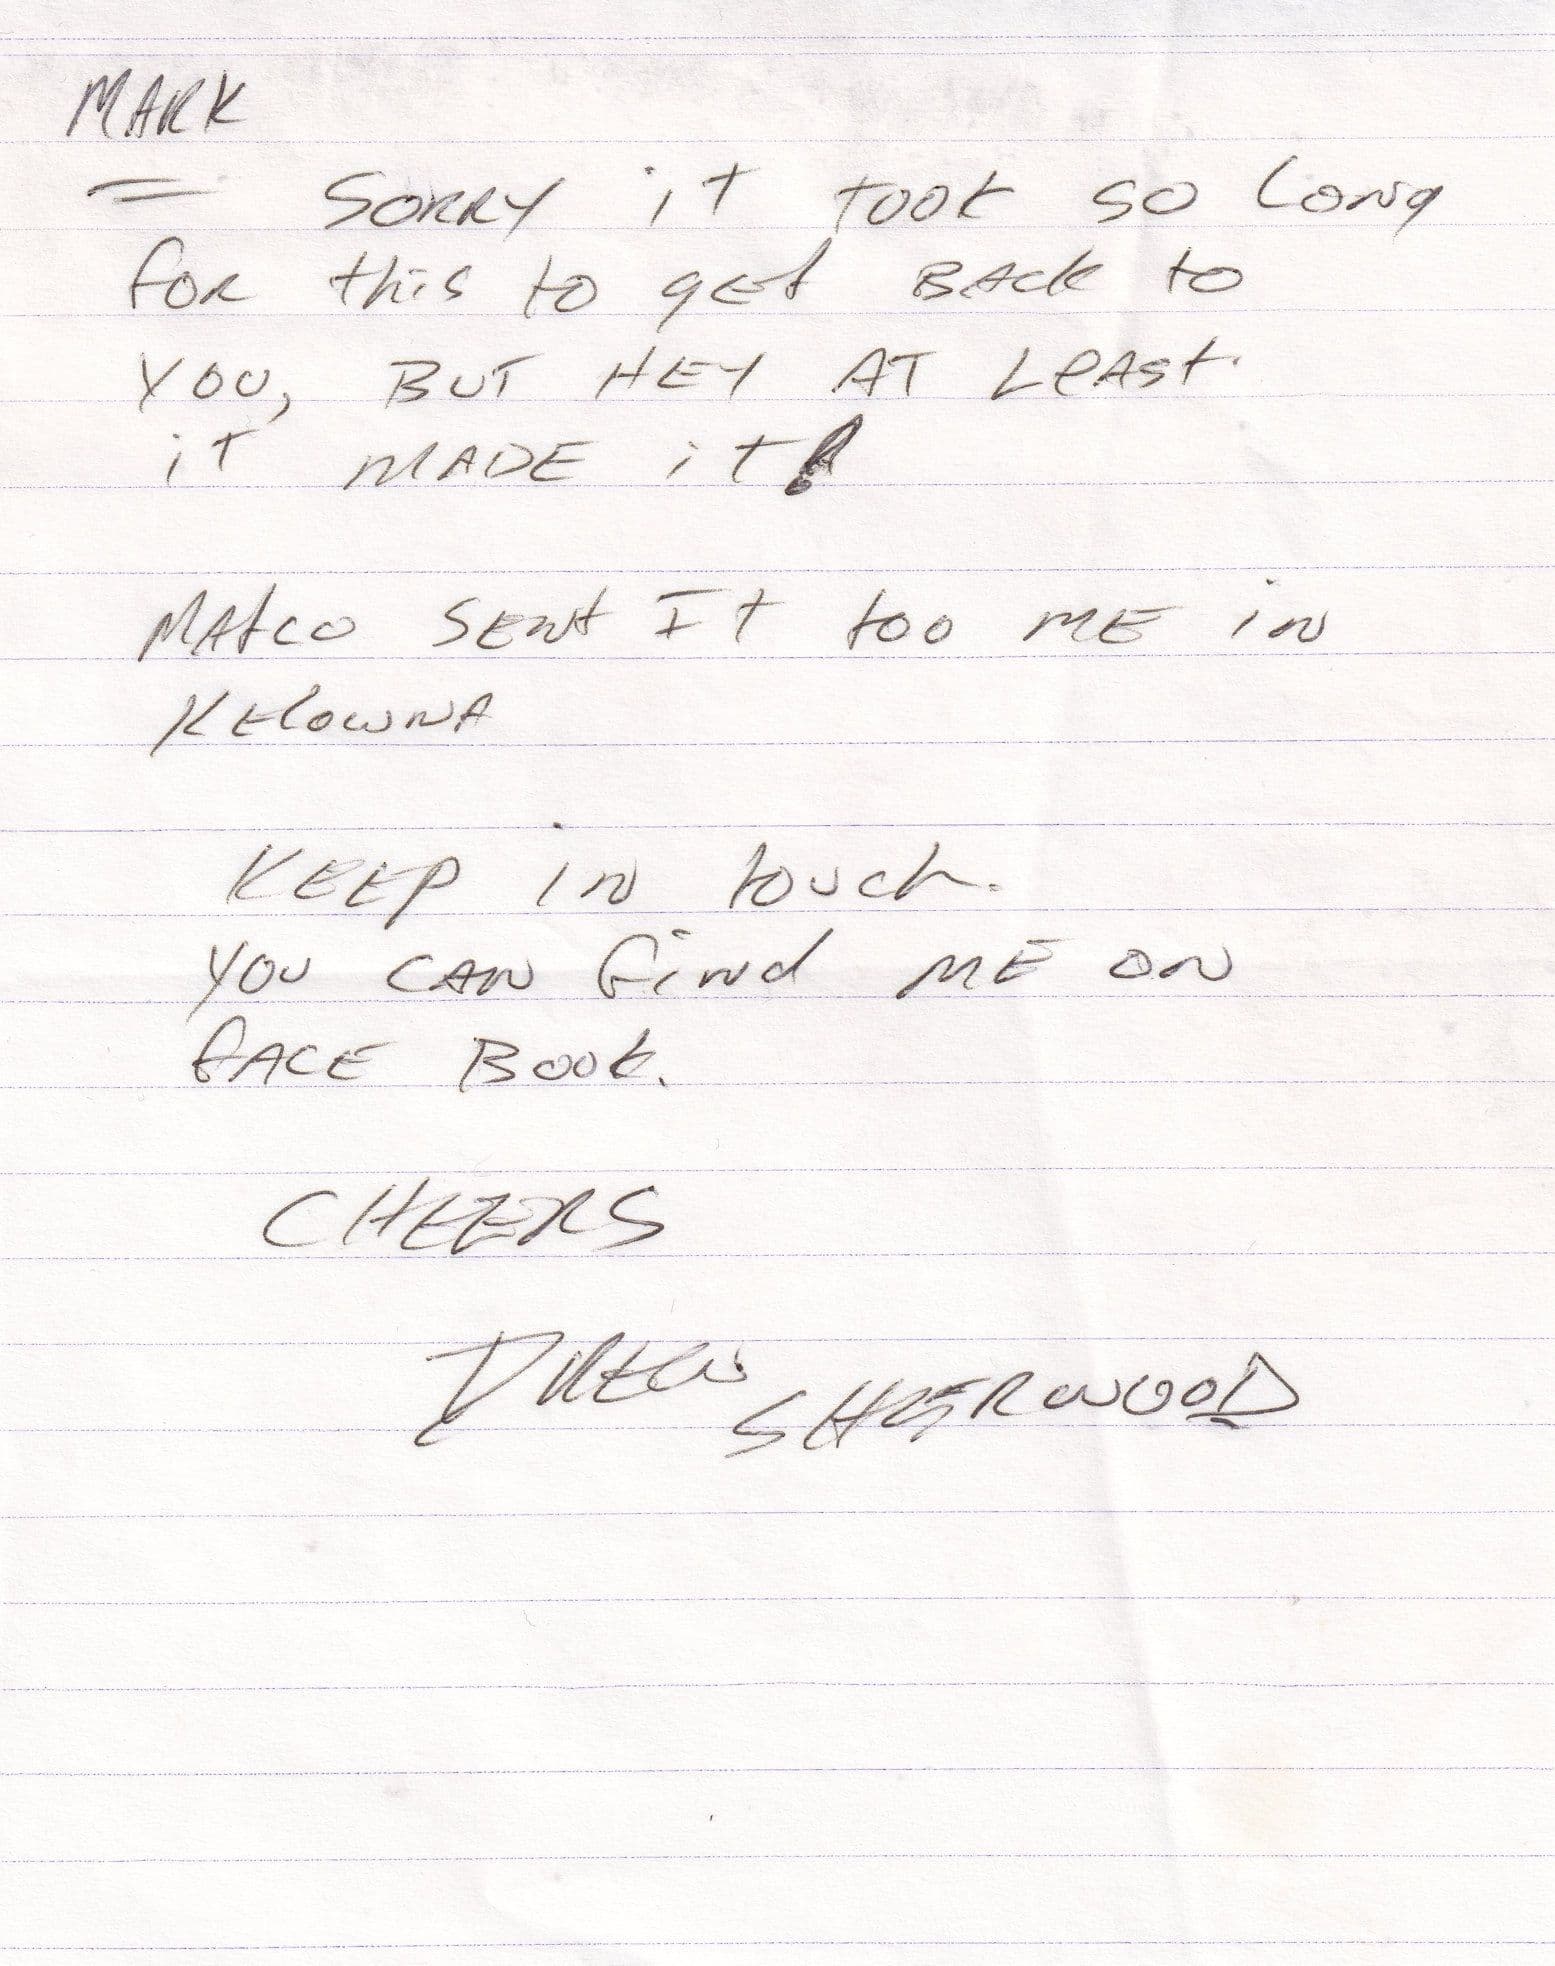 MARK
SORRY it took so Long
for this to get BACK to
YOU, BUT HEY AT LeAst
it MADE it!
MAtco SENt It too ME in
KElowNA
KEEP in touch.
YOU CAN find ME ON
fACE Book.
CHEERS
DREW SHERWOOD